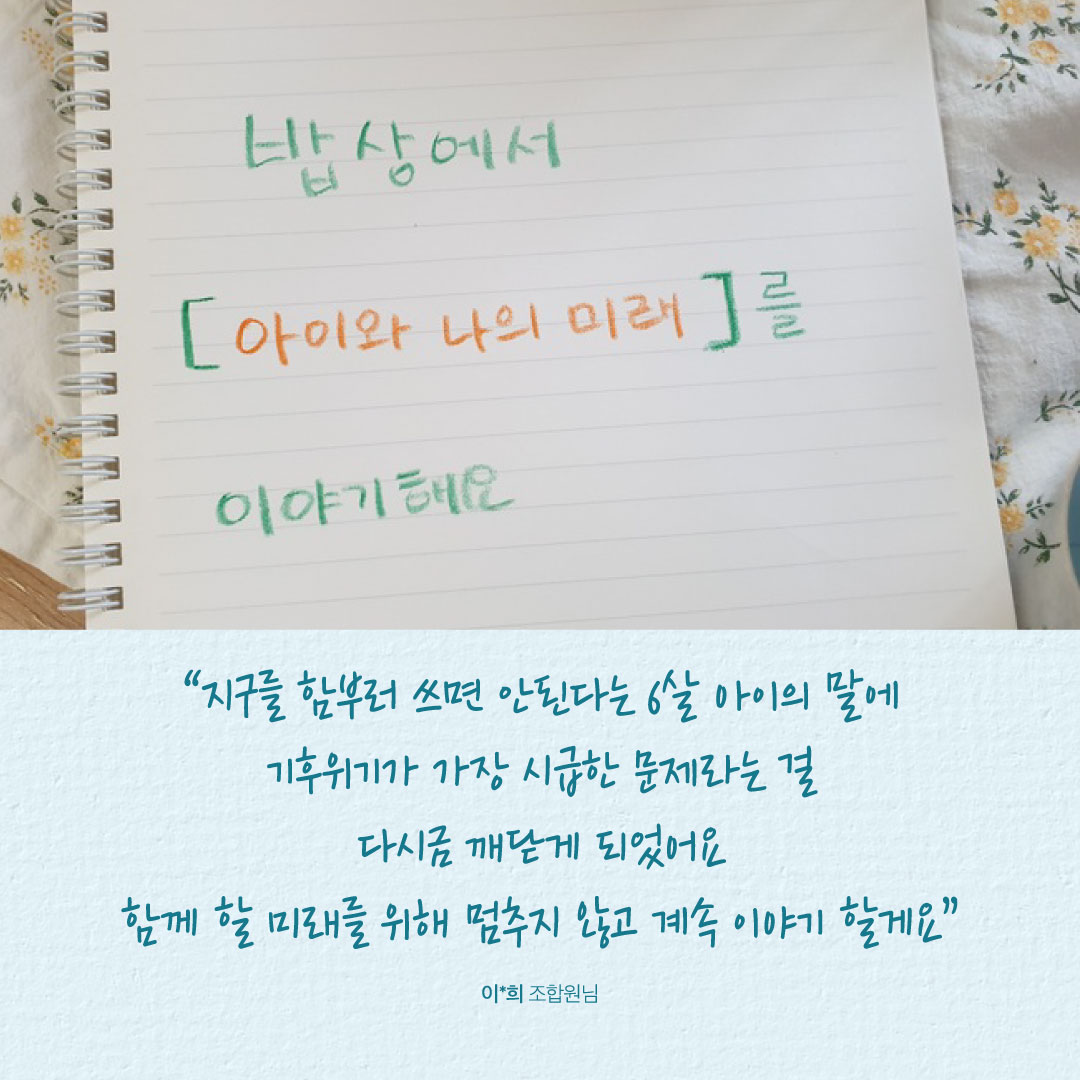 밥상에서
[아이와 나의 미래]를
이야기해요
“지구를 함부러 쓰면 안된다는 6살 아이의 말에
기후위기가 가장 시급한 문제라는 걸
다시금 깨닫게 되었어요
함께 할 미래를 위해 멈추지 않고 계속 이야기 할게요”
이*희 조합원님